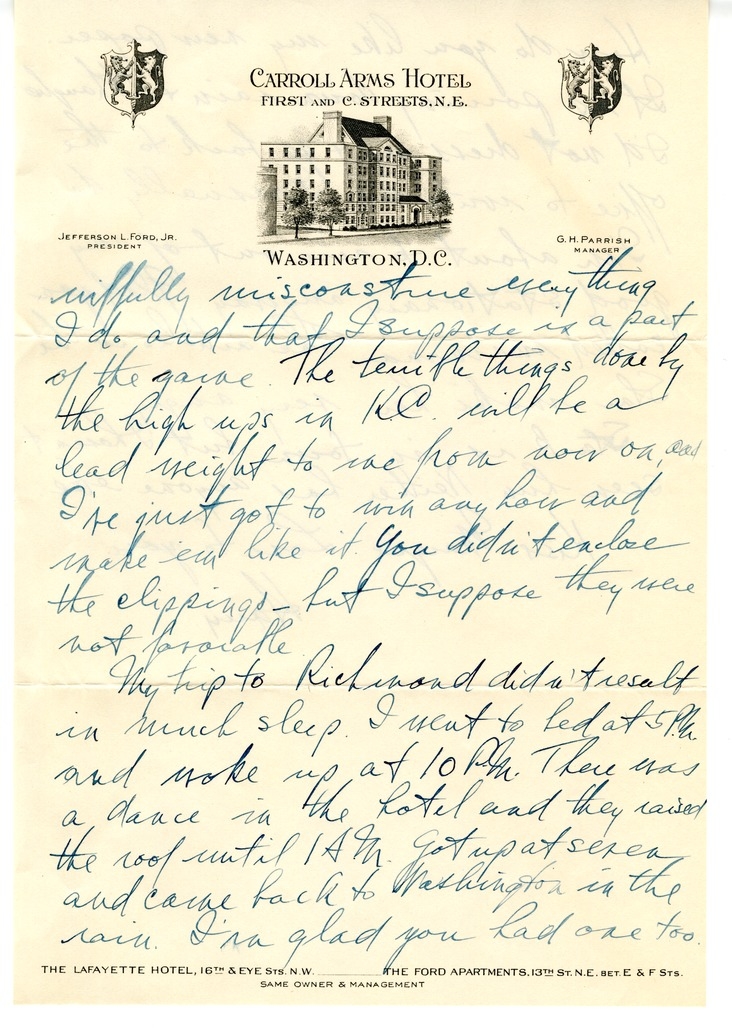 CARROLL ARMS HOTEL
FIRST AND C. STREETS, N.E.
JEFFERSON L. FORD, JR.
PRESIDENT
G. H. PARRISH
MANAGER
WASHINGTON, D.C.
willfully misconstrue everything
I do and that I suppose is a part
of the game. The terrible things done by
the high ups in K.C. will be a
lead weight to me from now on, and
I've just got to win any how and
make em like it. You didn't enclose
the clippings - but I suppose they were
not favorable.
My trip to Richmond didn't result
in much sleep. I went to bed at 5 P.M.
and woke up at 10 P.M. There was
a dance in the hotel and they raised
the roof until 1 A.M. Got up at seven
and came back to Washington in the
rain. I'm glad you had one too.
THE LAFAYETTE HOTEL, 16TH & EYE STS. N.W. THE FORD APARTMENTS, 13TH ST. N.E. BET. E & F STS.
SAME OWNER & MANAGEMENT